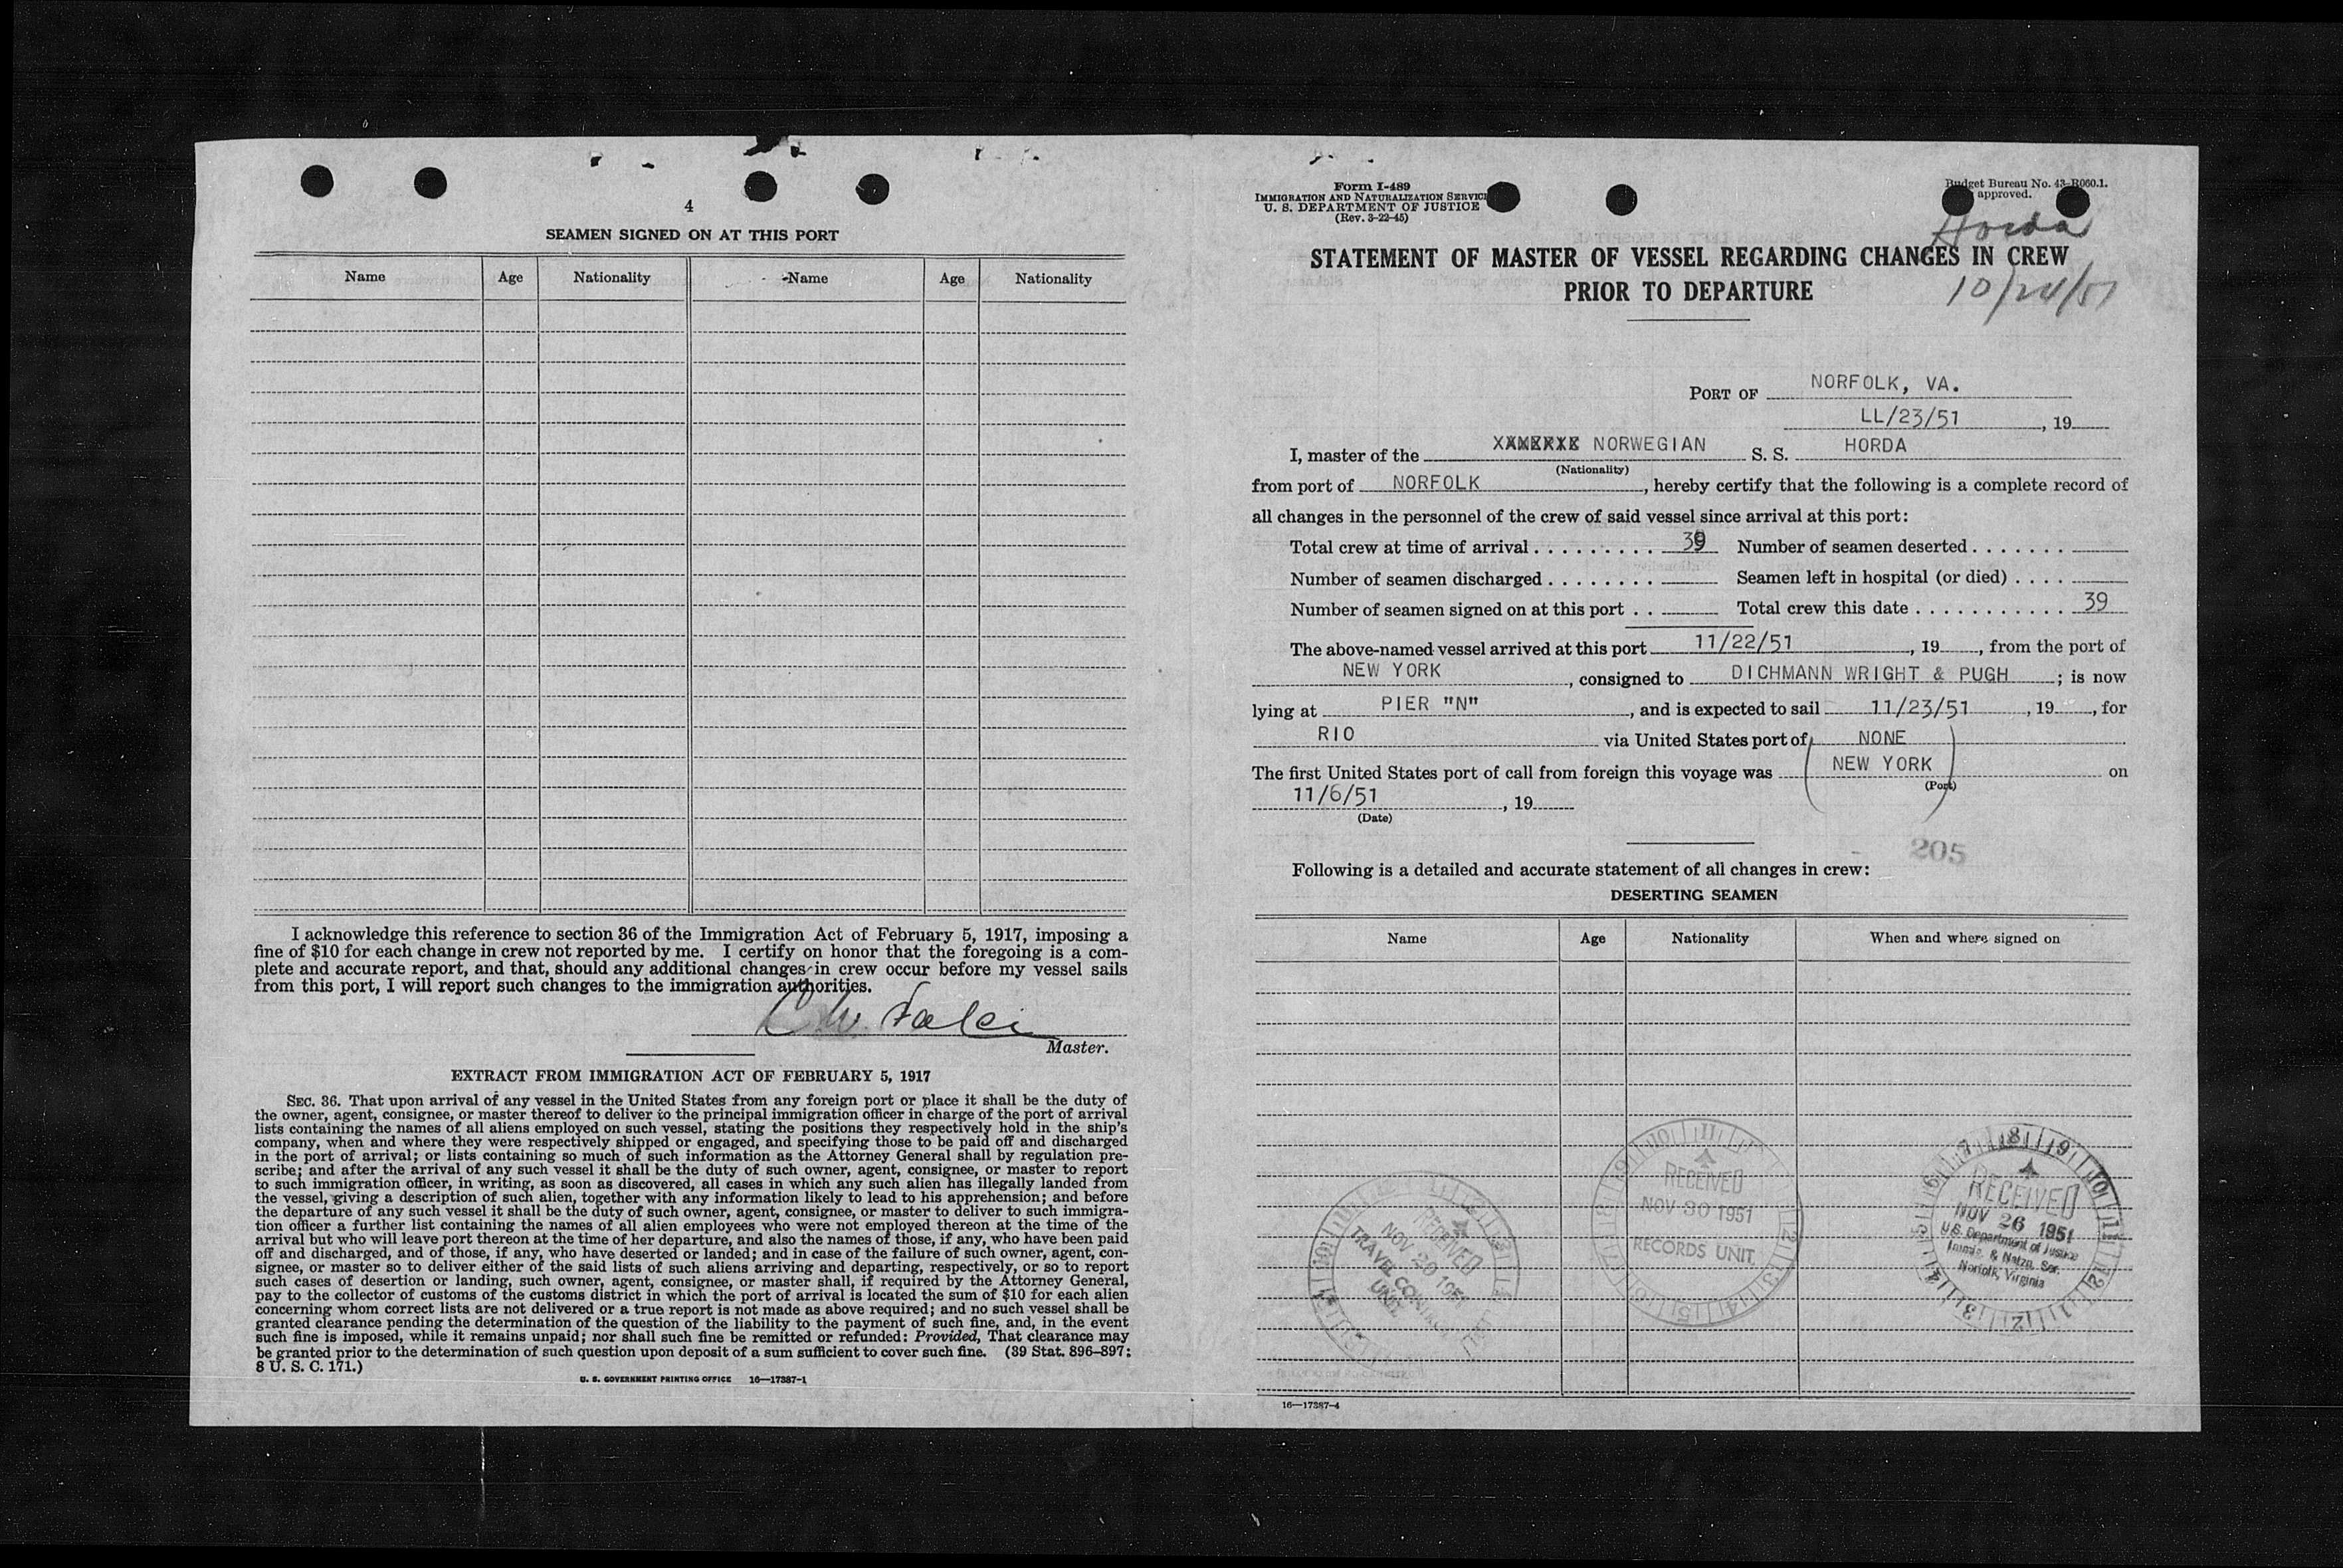 4
SEAMEN SIGNED ON AT THIS PORT
Name Age Nationality Name Age Nationality
I acknowledge this reference to section 36 of the Immigration Act of February 5, 1917, imposing a
fine of $10 for each change in crew not reported by me. I certify on honor that the foregoing is a com-
plete and accurate report, and that, should any additional changes in crew occur before my vessel sails
from this port, I will report such changes to the immigration authorities.
Master.
EXTRACT FROM IMMIGRATION ACT OF FEBRUARY 5, 1917
SEC. 36. That upon arrival of any vessel in the United States from any foreign port or place it shall be the duty of
the owner, agent, consignee, or master thereof to deliver to the principal immigration officer in charge of the port of arrival
lists containing the names of all aliens employed on such vessel, stating the positions they respectively hold in the ship's
company, when and where they were respectively shipped or engaged, and specifying those to be paid off and discharged
in the port of arrival; or lists containing so much of such information as the Attorney General shall by regulation pre-
scribe; and after the arrival of any such vessel it shall be the duty of such owner, agent, consignee, or master to report
to such immigration officer, in writing, as soon as discovered, all cases in which any such alien has illegally landed from
the vessel, giving a description of such alien, together with any information likely to lead to his apprehension; and before
the departure of any such vessel it shall be the duty of such owner, agent, consignee, or master to deliver to such immigra-
tion officer a further list containing the names of all alien employees who were not employed thereon at the time of the
arrival but who will leave port thereon at the time of her departure, and also the names of those, if any, who have been paid
off and discharged, and of those, if any, who have deserted or landed; and in case of the failure of such owner, agent, con-
signee, or master so to deliver either of the said lists of such aliens arriving and departing, respectively, or so to report
such cases of desertion or landing, such owner, agent, consignee, or master shall, if required by the Attorney General,
pay to the collector of customs of the customs district in which the port of arrival is located the sum of $10 for each alien
concerning whom correct lists are not delivered or a true report is not made as above required; and no such vessel shall be
granted clearance pending the determination of the question of the liability to the payment of such fine, and, in the event
such fine is imposed, while it remains unpaid; nor shall such fine be remitted or refunded: Provided, That clearance may
be granted prior to the determination of such question upon deposit of a sum sufficient to cover such fine. (39 Stat. 896–897;
8 U. S. C. 171.)
U. S. GOVERNMENT PRINTING OFFICE 16—17387-1
Form I-489
IMMIGRATION AND NATURALIZATION SERVICE
U. S. DEPARTMENT OF JUSTICE
(Rev. 3-22-45)
Budget Bureau No. 43-R060.1.
approved.
Horda
STATEMENT OF MASTER OF VESSEL REGARDING CHANGES IN CREW
PRIOR TO DEPARTURE
10/24/51
PORT OF NORFOLK, VA.
LL/23/51, 19
I, master of the NORWEGIAN S. S. HORDA
(Nationality)
from port of NORFOLK, hereby certify that the following is a complete record of
all changes in the personnel of the crew of said vessel since arrival at this port:
Total crew at time of arrival . . . . . . . . . . 39 Number of seamen deserted . . . . . . .
Number of seamen discharged . . . . . . . . Seamen left in hospital (or died) . . . .
Number of seamen signed on at this port . . Total crew this date . . . . . . . . . . . . 39
The above-named vessel arrived at this port 11/22/51, 19, from the port of
NEW YORK, consigned to DICHMANN WRIGHT & PUGH; is now
lying at PIER "N", and is expected to sail 11/23/51, 19, for
RIO via United States port of NONE
The first United States port of call from foreign this voyage was NEW YORK on
(Port)
11/6/51, 19
(Date)
205
Following is a detailed and accurate statement of all changes in crew:
DESERTING SEAMEN
Name Age Nationality When and where signed on
RECEIVED
NOV 20 1951
TRAVEL CONTROL
UNIT
RECEIVED
NOV 30 1951
RECORDS UNIT
RECEIVED
NOV 26 1951
U.S. Department of Justice
Immig. & Natzn. Ser.
Norfolk, Virginia
16—17387-4